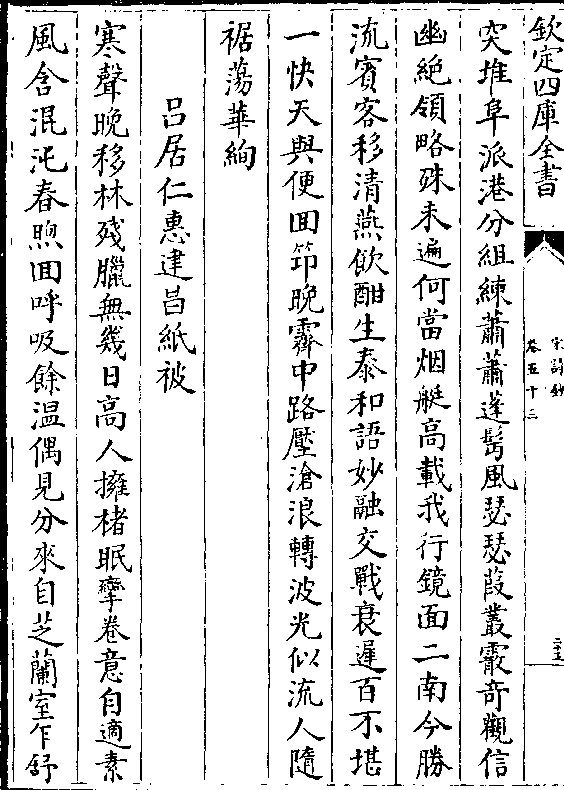 欽定四庫全書
宋詩鈔
卷五十三
突堆阜派港分組練蕭蕭蓬髩風瑟瑟葭叢霰奇觀信
幽絶領略殊未遍何當烟艇高載我行鏡面二南今勝
流賓客移清燕飲酣生泰和語妙融交戰衰遲百不堪
一快天與便囬笻晚霽中路壓滄浪轉波光似流人隨
裾蕩華絢
吕居仁惠建昌紙被
寒聲晚移林殘臘無幾日高人擁楮眠孿卷意自適素
風含混沌春煦囬呼吸餘温偶見分來自芝蘭室乍舒